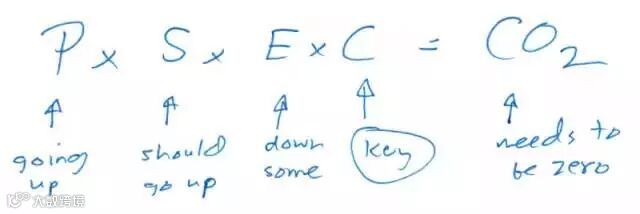 P x S x E x C = CO2
↑ ↑ ↑ ↑ ↑
going up
should go up
down some
key
needs to be zero
大数跨境